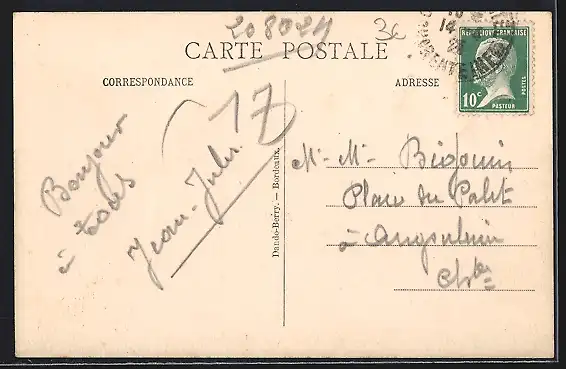 208024
3c
CARTE POSTALE
CORRESPONDANCE
ADRESSE
REPUBLIQUE FRANÇAISE
POSTES
10c
PASTEUR
17
Bonjour
à tous
Jean-Jules
Dando-Berry. — Bordeaux.
Mr - Me - Bidouin
Place du Palet
à Angoulême
Chte